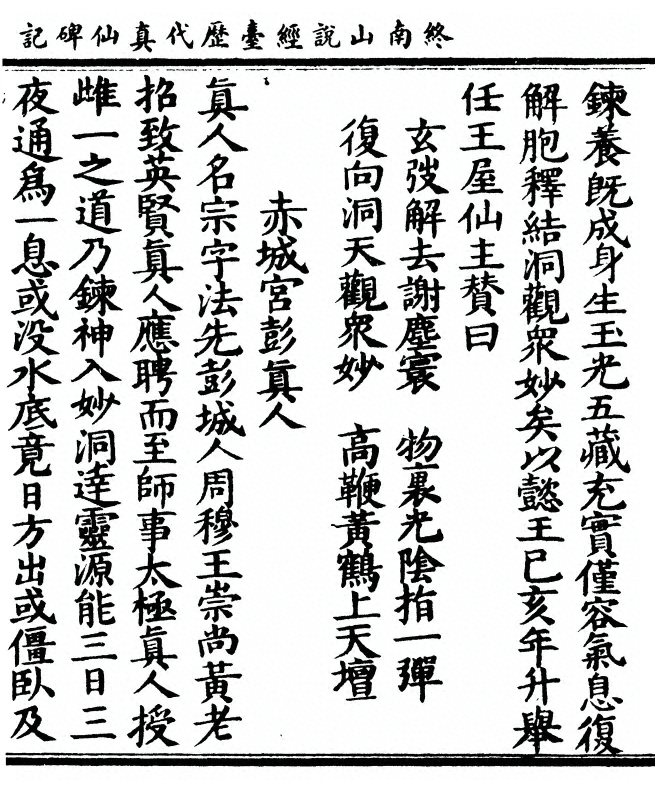 終南山說經臺歷代真仙碑記
鍊養既成身生玉光五藏充實僅容氣息復
解胞釋結洞觀衆妙矣以懿王已亥年升舉
任王屋仙主賛曰
玄弢解去謝塵寰　物裏光陰拍一彈
復向洞天觀衆妙　高鞭黃鶴上天壇
赤城宮彭眞人
眞人名宗字法先彭城人周穆王崇尚黃老
招致英賢眞人應聘而至師事太極眞人授
雌一之道乃鍊神入妙洞達靈源能三日三
夜通爲一息或没水底竟日方出或僵臥及